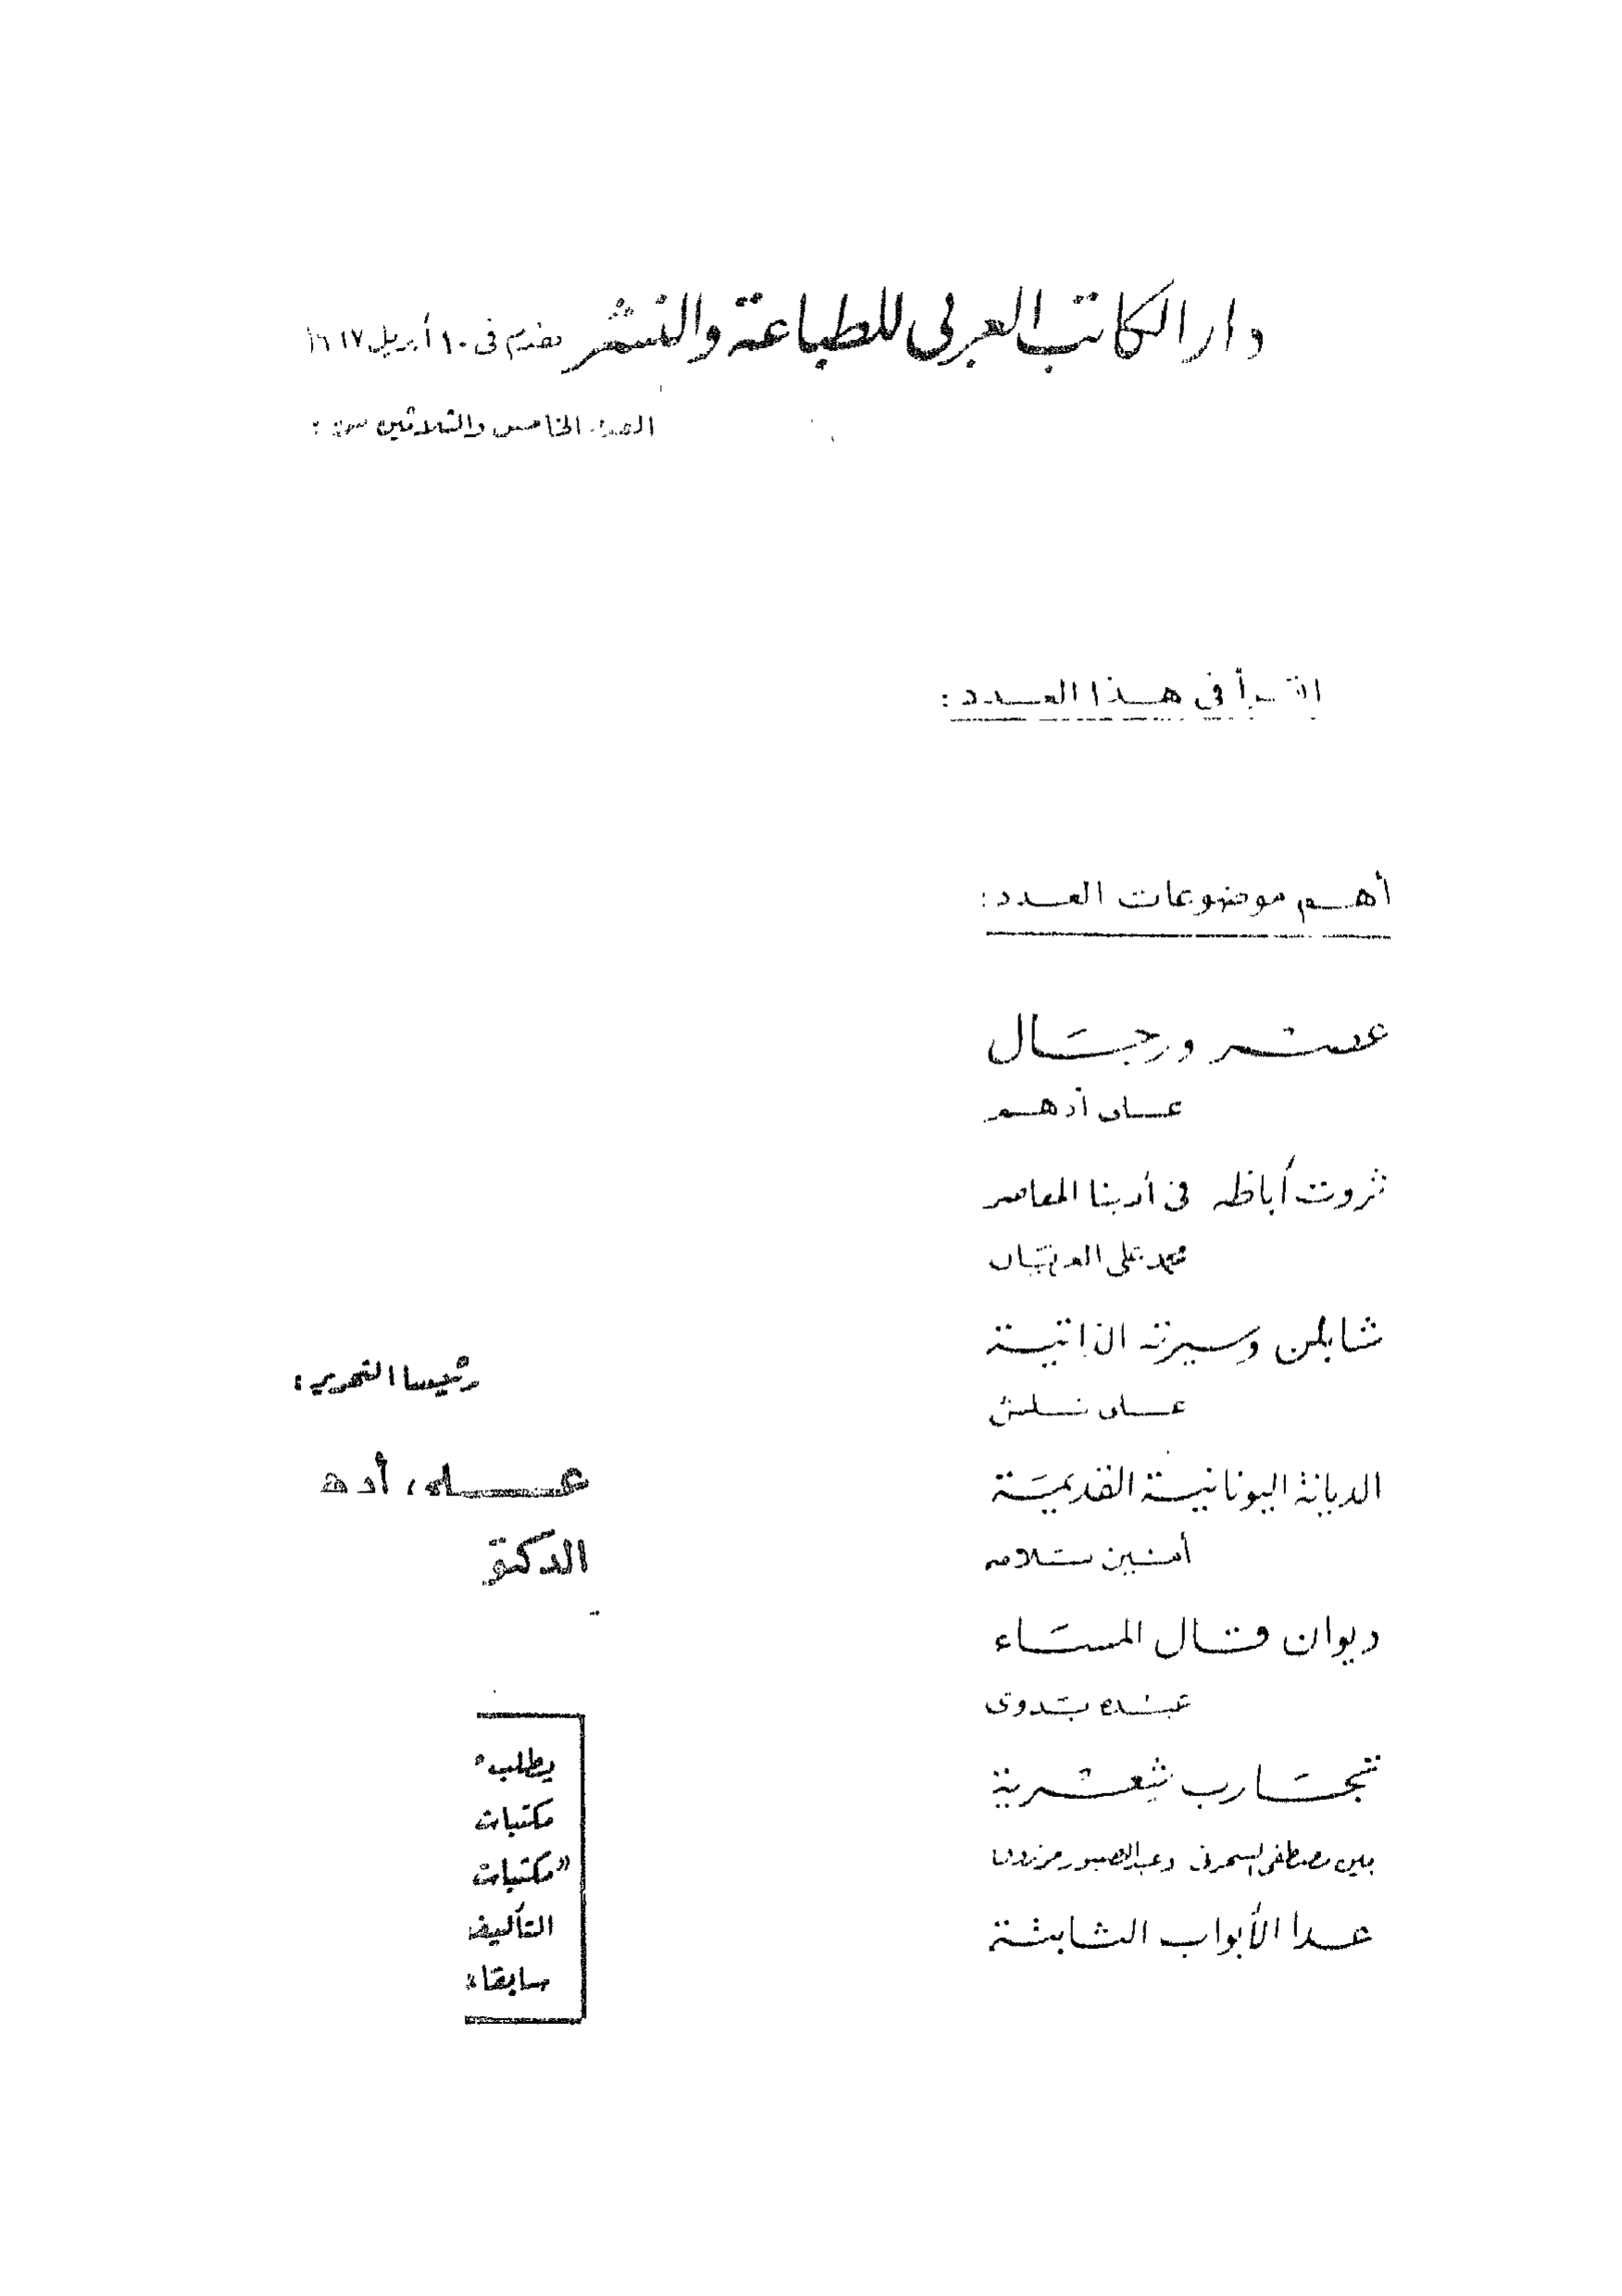 دار الكاتب العربى للطباعة والنشر تقدم فى ١٠ أبريل
العدد الخامس والثلاثين من :
اقرأ فى هذا العدد :
أهم موضوعات العدد :
عصر ورجال
على أدهم
ثروت أباظه فى أدبنا المعاصر
محمد على
شابلن وسيرته الذاتية
على شلش
الديانة اليونانية القديمة
أمين سلامه
ديوان قال المساء
عبده بدوى
تجارب شعرية
بين مصطفى السحرتى وعبد الصبور مرزوق
عدا الأبواب الثابتة
رئيسا التحرير :
على أدهـ
الدكتو
يطلب
مكتبات
"مكتبات
التأليف
سابقا"